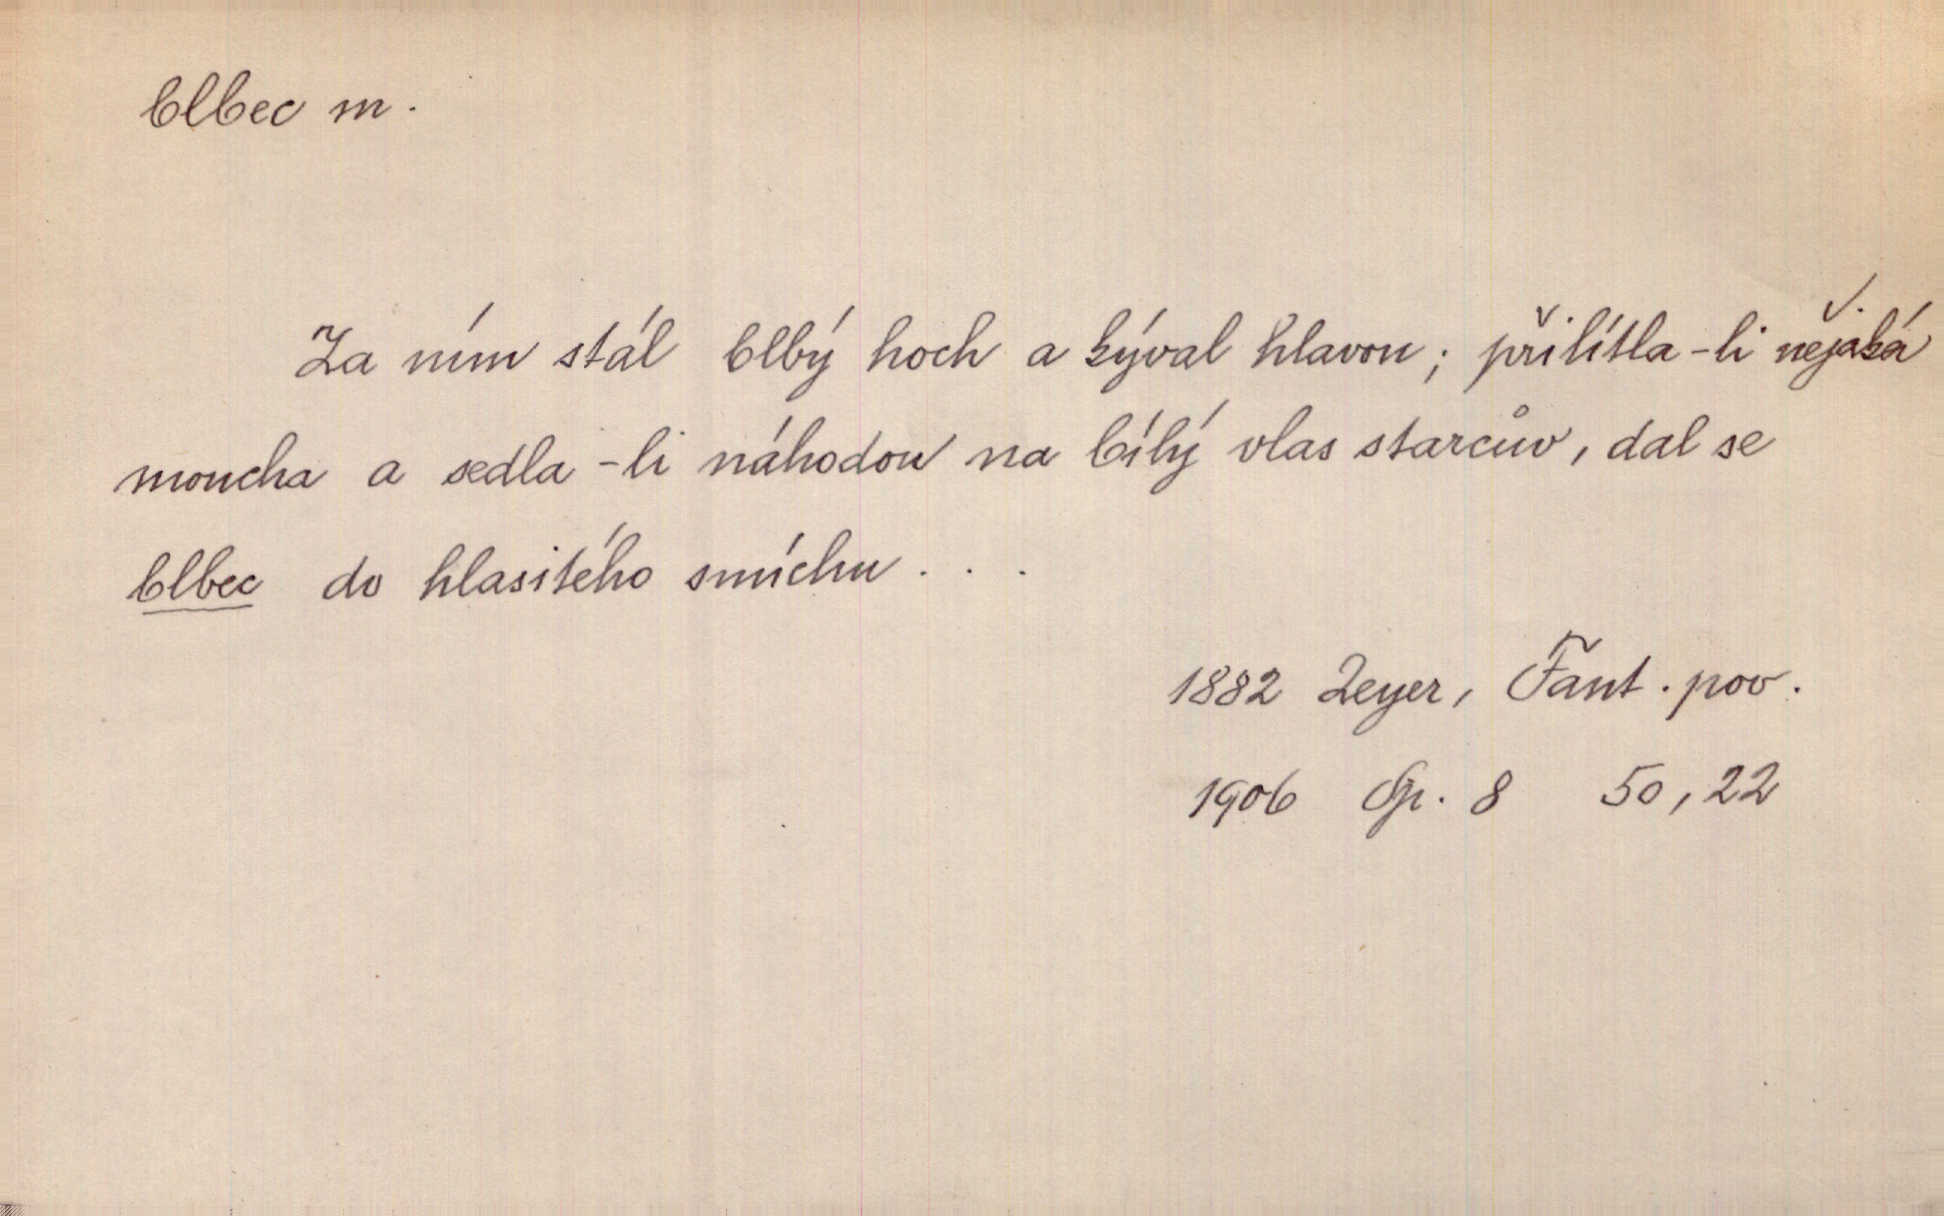 blbec m.
Za ním stál blbý hoch a kýval hlavou; přilítla-li nějaká
moucha a sedla-li náhodou na bílý vlas starcův, dal se
blbec do hlasitého smíchu...
1882 Zeyer, Fant. pov.
1906 Sp. 8 50,22